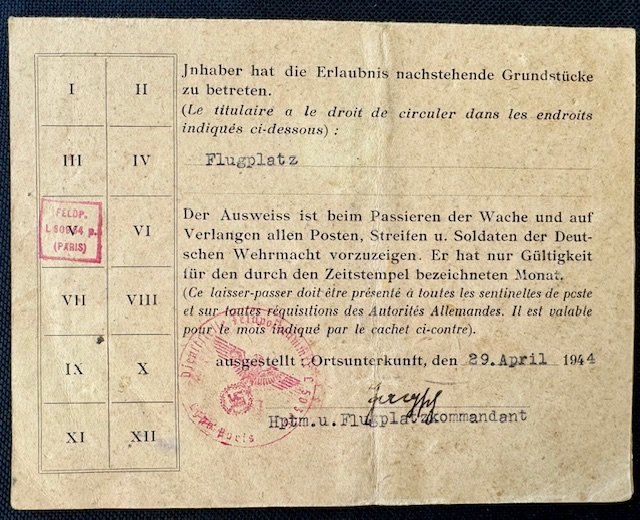 I II
III IV
FELDP.
(PARIS)
V VI
VII VIII
IX X
XI XII
Jnhaber hat die Erlaubnis nachstehende Grundstücke
zu betreten.
(Le titulaire a le droit de circuler dans les endroits
indiqués ci-dessous) :
Flugplatz
Der Ausweiss ist beim Passieren der Wache und auf
Verlangen allen Posten, Streifen u. Soldaten der Deut-
schen Wehrmacht vorzuzeigen. Er hat nur Gültigkeit
für den durch den Zeitstempel bezeichneten Monat.
(Ce laisser-passer doit être présenté à toutes les sentinelles de poste
et sur toutes réquisitions des Autorités Allemandes. Il est valable
pour le mois indiqué par le cachet ci-contre).
ausgestellt : Ortsunterkunft, den 29.April 1944
Hptm.u.Flugplatzkommandant
Dienststelle Feldpostnummer
Paris